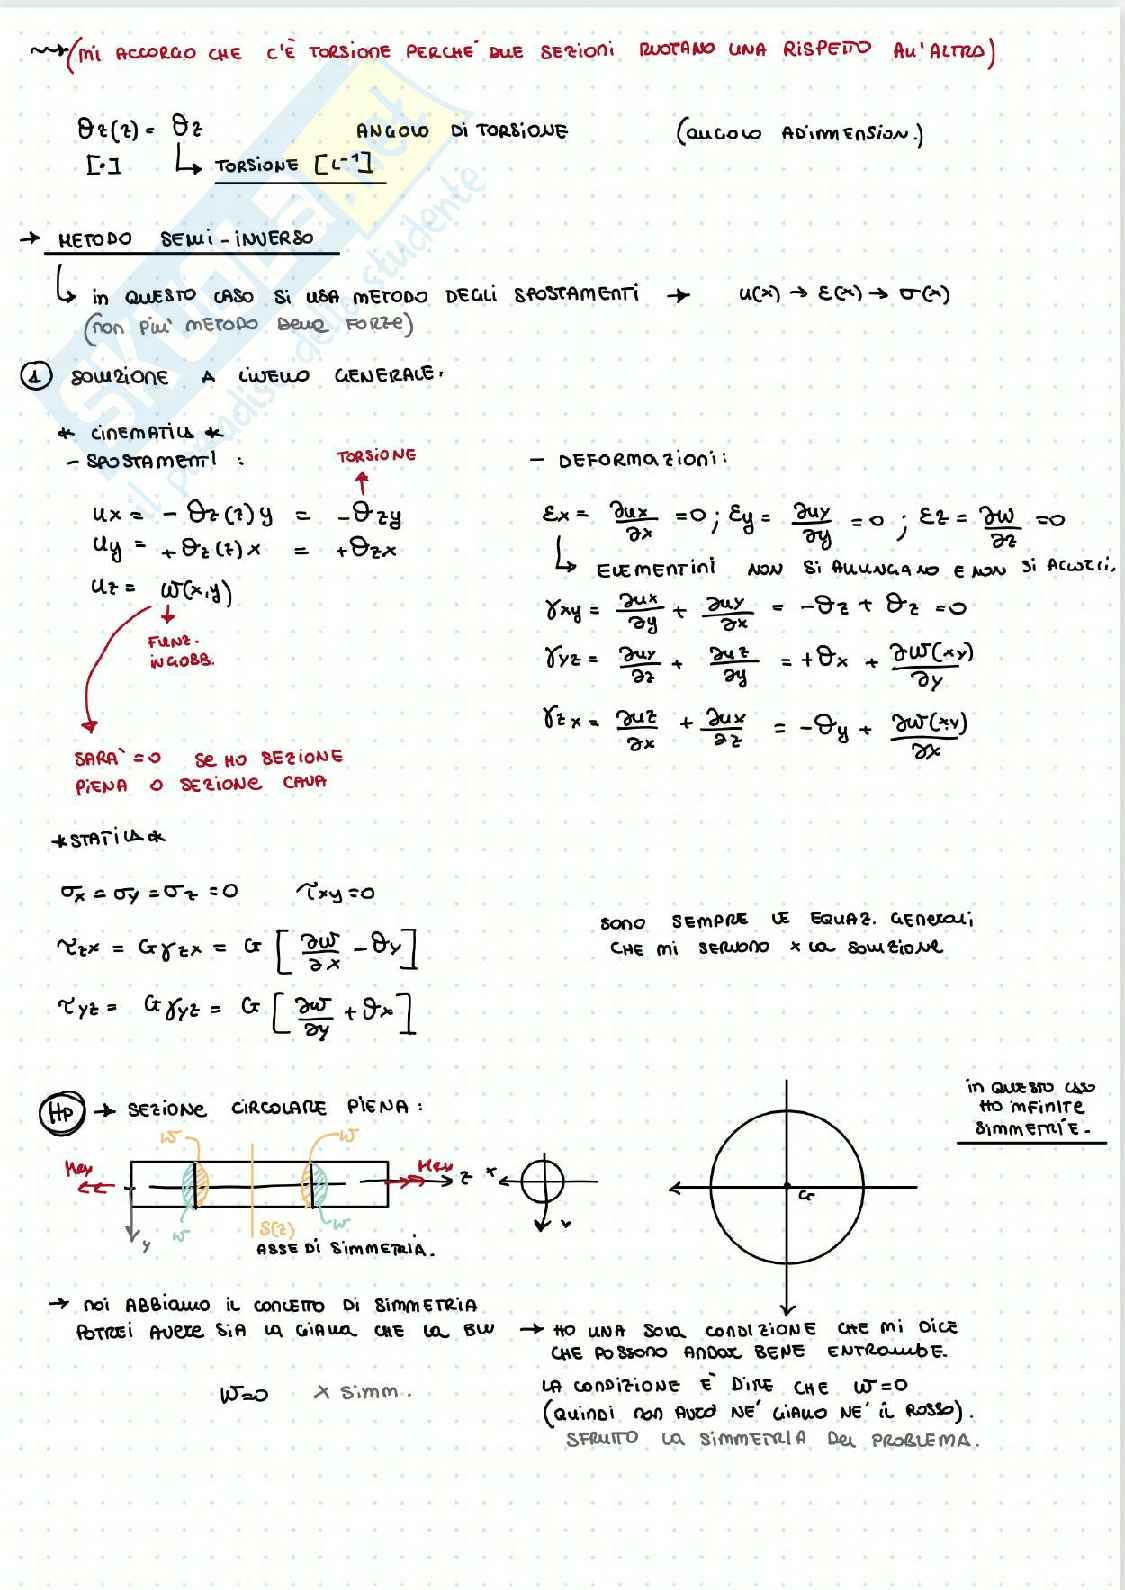 (mi ACCORGO CHE C'È TORSIONE PERCHÉ DUE SEZIONI RUOTANO UNA RISPETTO ALL'ALTRA)
θz(z) = θz ANGOLO DI TORSIONE (ANGOLO ADIMENSION.)
[·] ↳ TORSIONE [L⁻¹]
→ METODO SEMI-INVERSO
↳ in QUESTO CASO SI USA METODO DEGLI SPOSTAMENTI → u(x) → ε(x) → σ(x)
(non PIU' METODO DELLE FORZE)
① SOLUZIONE A LIVELLO GENERALE.
* CINEMATICA *
- SPOSTAMENTI : TORSIONE
ux = - θz(z)y = -θzy
uy = +θz(z)x = +θzx
uz = w(x,y)
FUNZ.
INGOBB.
SARA' =0 SE HO SEZIONE
PIENA O SEZIONE CAVA
- DEFORMAZIONI:
εx = ∂ux/∂x =0 ; εy = ∂uy/∂y =0 ; εz = ∂w/∂z =0
↳ ELEMENTINI NON SI ALLUNGANO E NON SI ACCORCI.
γxy = ∂ux/∂y + ∂uy/∂x = -θz + θz =0
γyz = ∂uy/∂z + ∂uz/∂y = +θx + ∂w(xy)/∂y
γzx = ∂uz/∂x + ∂ux/∂z = -θy + ∂w(x,y)/∂x
*STATICA*
σx = σy = σz =0 τxy=0
τzx = Gγzx = G [∂w/∂x - θy]
τyz = Gγyz = G [∂w/∂y + θx]
SONO SEMPRE LE EQUAZ. GENERALI,
CHE MI SERVONO x LA SOLUZIONE
HP → SEZIONE CIRCOLARE PIENA:
in QUESTO CASO
HO INFINITE
SIMMETRIE.
w w
Mex Mex z x
y w S(z) w y G
ASSE DI SIMMETRIA.
→ noi ABBIAMO IL CONCETTO DI SIMMETRIA
POTREI AVERE SIA LA GIALLA CHE LA BLU
w=0 x Simm.
→ HO UNA SOLA CONDIZIONE CHE MI DICE
CHE POSSONO ANDAR BENE ENTRAMBE.
LA CONDIZIONE E' DIRE CHE w=0
(QUINDI non AVRO' NE' GIALLO NE' IL ROSSO).
SFRUTTO LA SIMMETRIA DEL PROBLEMA.
SKUOLA.net
il paradiso dello studente